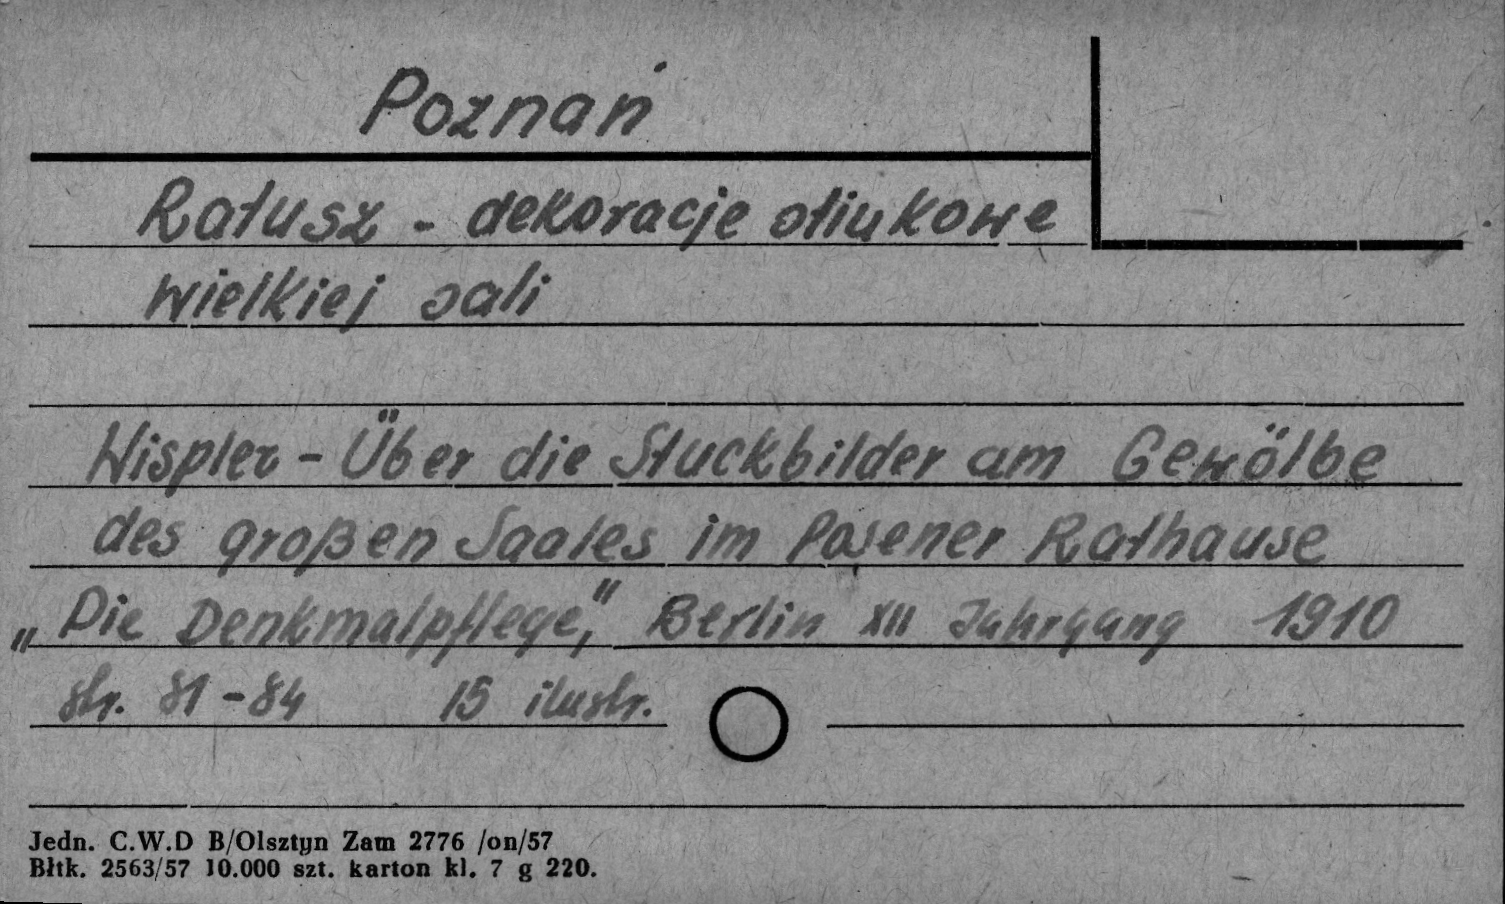 Poznań
Ratusz - dekoracje stiukowe
wielkiej sali
Wispler - Über die Stuckbilder am Gewölbe
des großen Saales im Posener Rathause
„Die Denkmalpflege," Berlin XII Jahrgang 1910
str. 81-84 15 ilustr.
Jedn. C.W.D B/Olsztyn Zam 2776 /on/57
Błtk. 2563/57 10.000 szt. karton kl. 7 g 220.